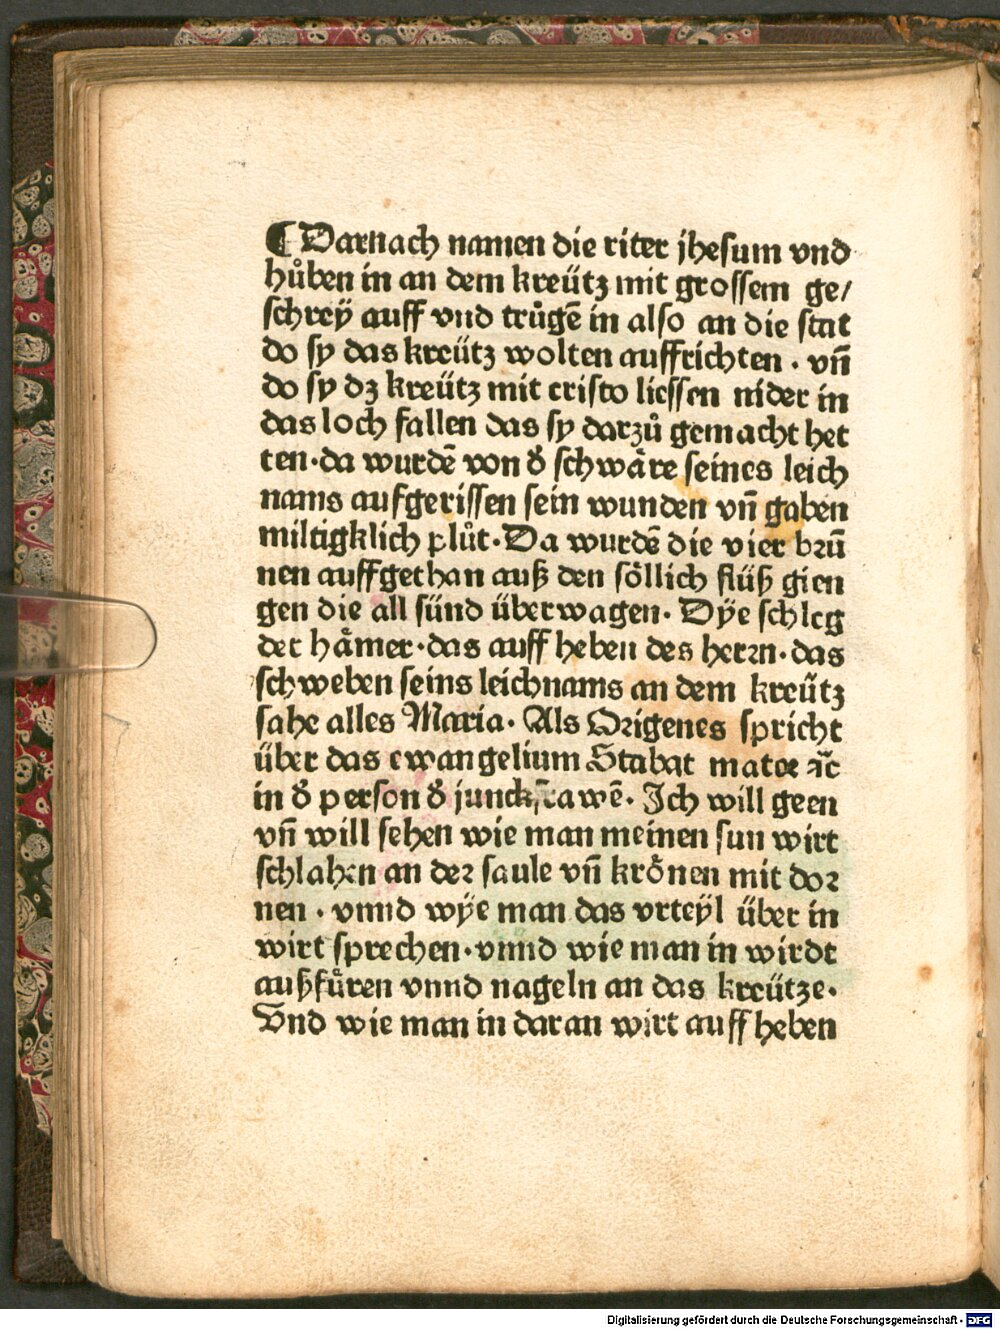 ⸿ Darnach namen die riter jhesum vnd
hůben in an dem kreütz mit grossem ge/
schreÿ auff vnd trůgē in also an die stat
do sy das kreütz wolten auffrichten · vn̄
do sy dz kreütz mit cristo liessen nider in
das loch fallen das sy darzů gemacht het
ten · da wurdē von d̕ schwäre seines leich
nams aufgerissen sein wunden vn̄ gaben
miltigklich plůt · Da wurdē die vier brū
nen auffgethan auß den söllich flüß gien
gen die all sünd überwagen · Dÿe schleg
der hämer · das auff heben des herrn · das
schweben seins leichnams an dem kreütz
sahe alles Maria · Als Origenes spricht
über das ewangelium Stabat mater ꝛc̄
in d̕ person d̕ junckfrawē · Ich will geen
vn̄ will sehen wie man meinen sun wirt
schlahen an der saule vn̄ krönen mit dor
nen · vnnd wÿe man das vrteÿl über in
wirt sprechen · vnnd wie man in wirdt
außfüren vnnd nageln an das kreütze ·
Vnd wie man in daran wirt auff heben
Digitalisierung gefördert durch die Deutsche Forschungsgemeinschaft - DFG